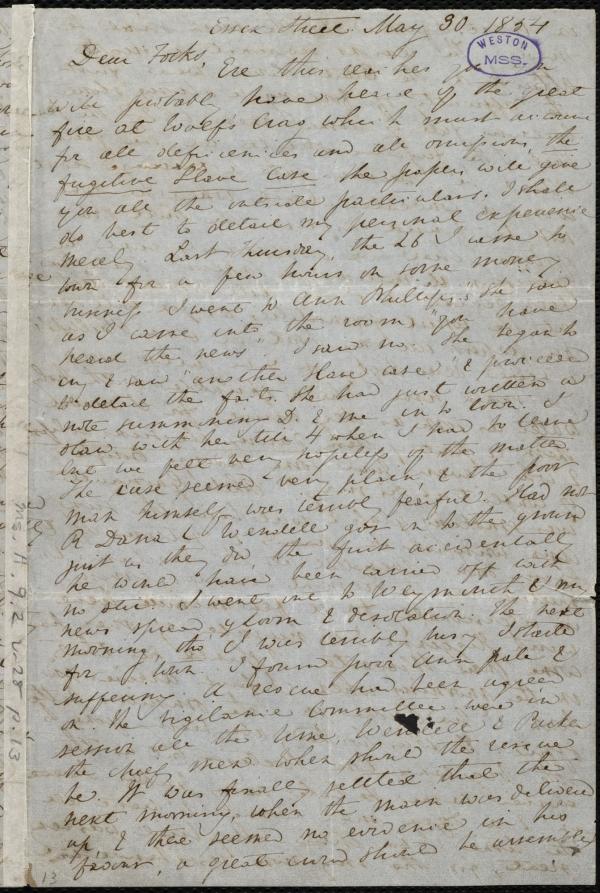 Essex Street. May 30. 1854
WESTON
MSS.
Dear Folks,
Ere this reaches you
will probably have heard of the great
fire at Wolf's Crag which must account
for all deficiencies and all omissions, the
fugitive Slave case the papers will give
you all the outside particulars. I shall
do best to detail my personal experience
merely Last Thursday, the 26 I came to
town for a few hours on some money
business I went to Ann Phillips. She said
as I came into the room "you have
heard the news". I said no She began to
cry & said "another slave case" & proceeded
to detail the facts. She had just written a
note summoning D. & me in to town. I
staid with her till 4 when I had to leave
but we felt very hopeless of the matter
The case seemed very plain & the poor
man himself was terribly fearful. Had not
R Dana & Wendell got on to the ground
just as they did the first accidentally
he would have been carried off with
no stir I went out to Weymouth & my
news spread gloom & desolation. The next
morning tho I was terribly busy I started
for town. I found poor Ann pale &
suffering. A rescue had been agreed
on. The vigilance Committee were in
session all the time, Wendell & Parker
the chief men when should the rescue
be It was finally settled that the
next morning, when the man was delivered
up, & there seemed no evidence in his
favour, a great crowd should be assembled
Ms. A. 9. 2 v. 28 p. 13
13